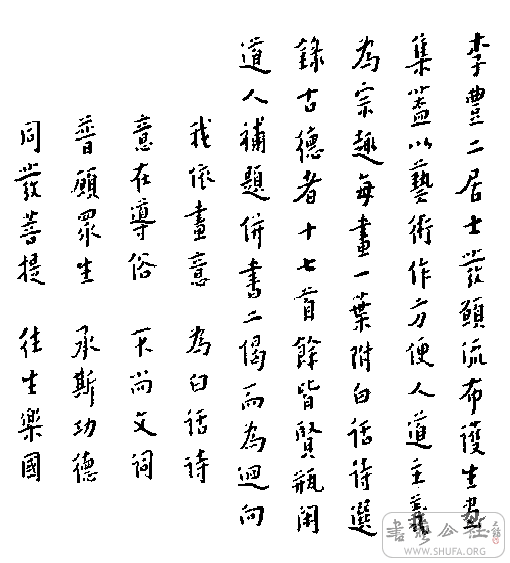 李豐二居士發願流布護生畫
集蓋以藝術作方便人道主義
為宗趣每畫一葉附白話詩選
錄古德者十七首餘皆賢瓶閑
道人補題併書二偈而為迴向
我依畫意　為白話詩
意在導俗　不尚文詞
普願眾生　承斯功德
同發菩提　往生樂國
書藝公社
WWW.SHUFA.ORG